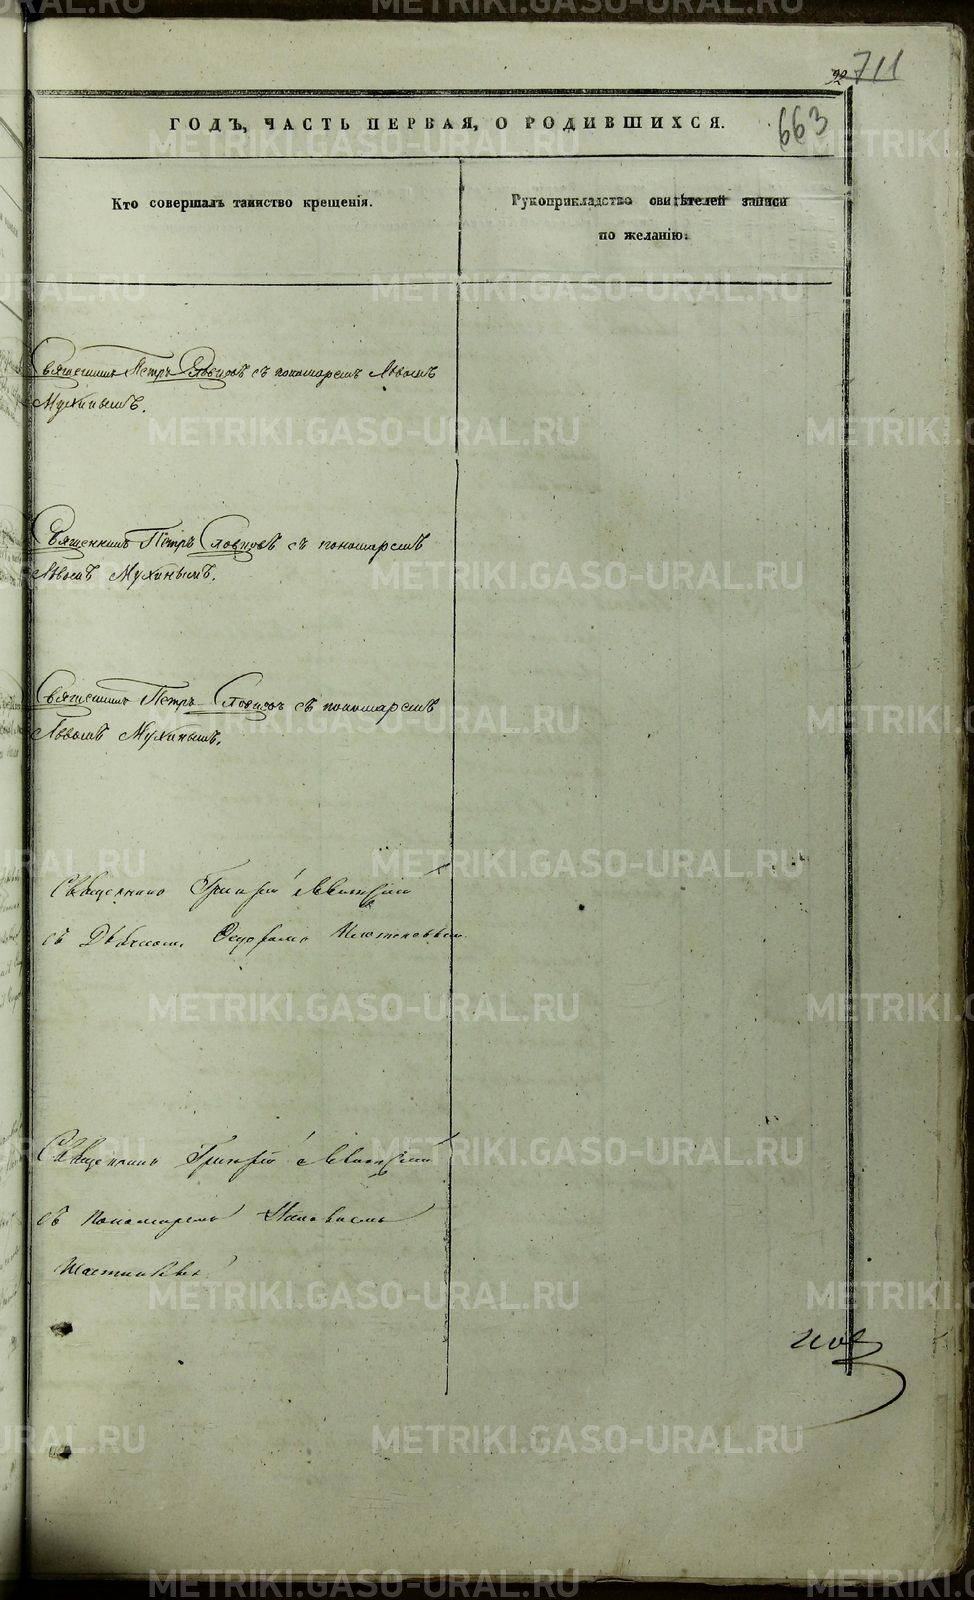 92 711
663
ГОДЪ, ЧАСТЬ ПЕРВАЯ, О РОДИВШИХСЯ.
Кто совершалъ таинство крещенія.
Рукоприкладство свидѣтелей записи
по желанію.
Священникъ Петръ Словцовъ съ пономаремъ Львомъ
Мухинымъ.
Священникъ Петръ Словцовъ съ пономаремъ
Львомъ Мухинымъ.
Священникъ Петръ Словцовъ съ пономаремъ
Львомъ Мухинымъ.
Священникъ Григорій
съ Дьякономъ Федоромъ
Священникъ Григорій
съ пономаремъ
METRIKI.GASO-URAL.RU